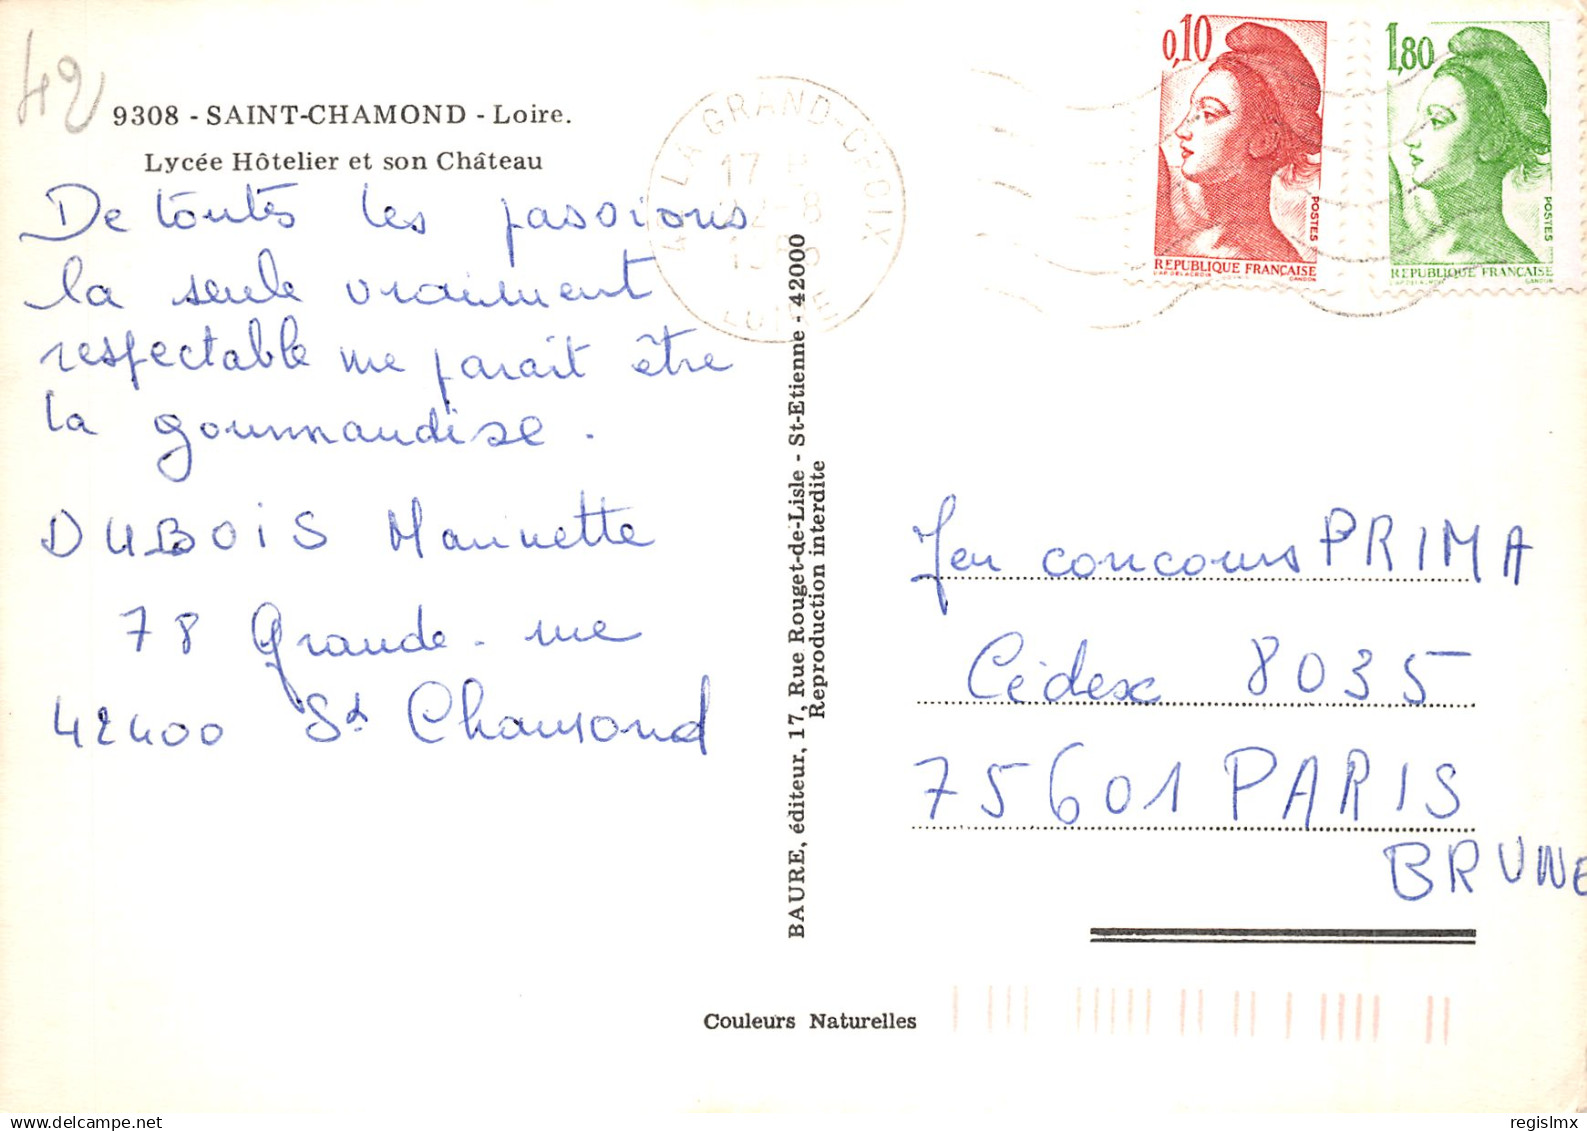 42
9308 - SAINT-CHAMOND - Loire.
Lycée Hôtelier et son Château
De toutes les passions
la seule vraiment
respectable me parait être
la gourmandise.
DUBOIS Marinette
78 Grande-rue
42400 St Chamond
BAURE, éditeur, 17, Rue Rouget-de-Lisle - St-Etienne - 42000
Reproduction interdite
LA GRAND-CROIX
17 H
LOIRE
0,10
POSTES
REPUBLIQUE FRANÇAISE
GANDON
1,80
POSTES
REPUBLIQUE FRANÇAISE
GANDON
Jeu concours PRIMA
Cédex 8035
75601 PARIS
BRUNE
Couleurs Naturelles
© regislmx